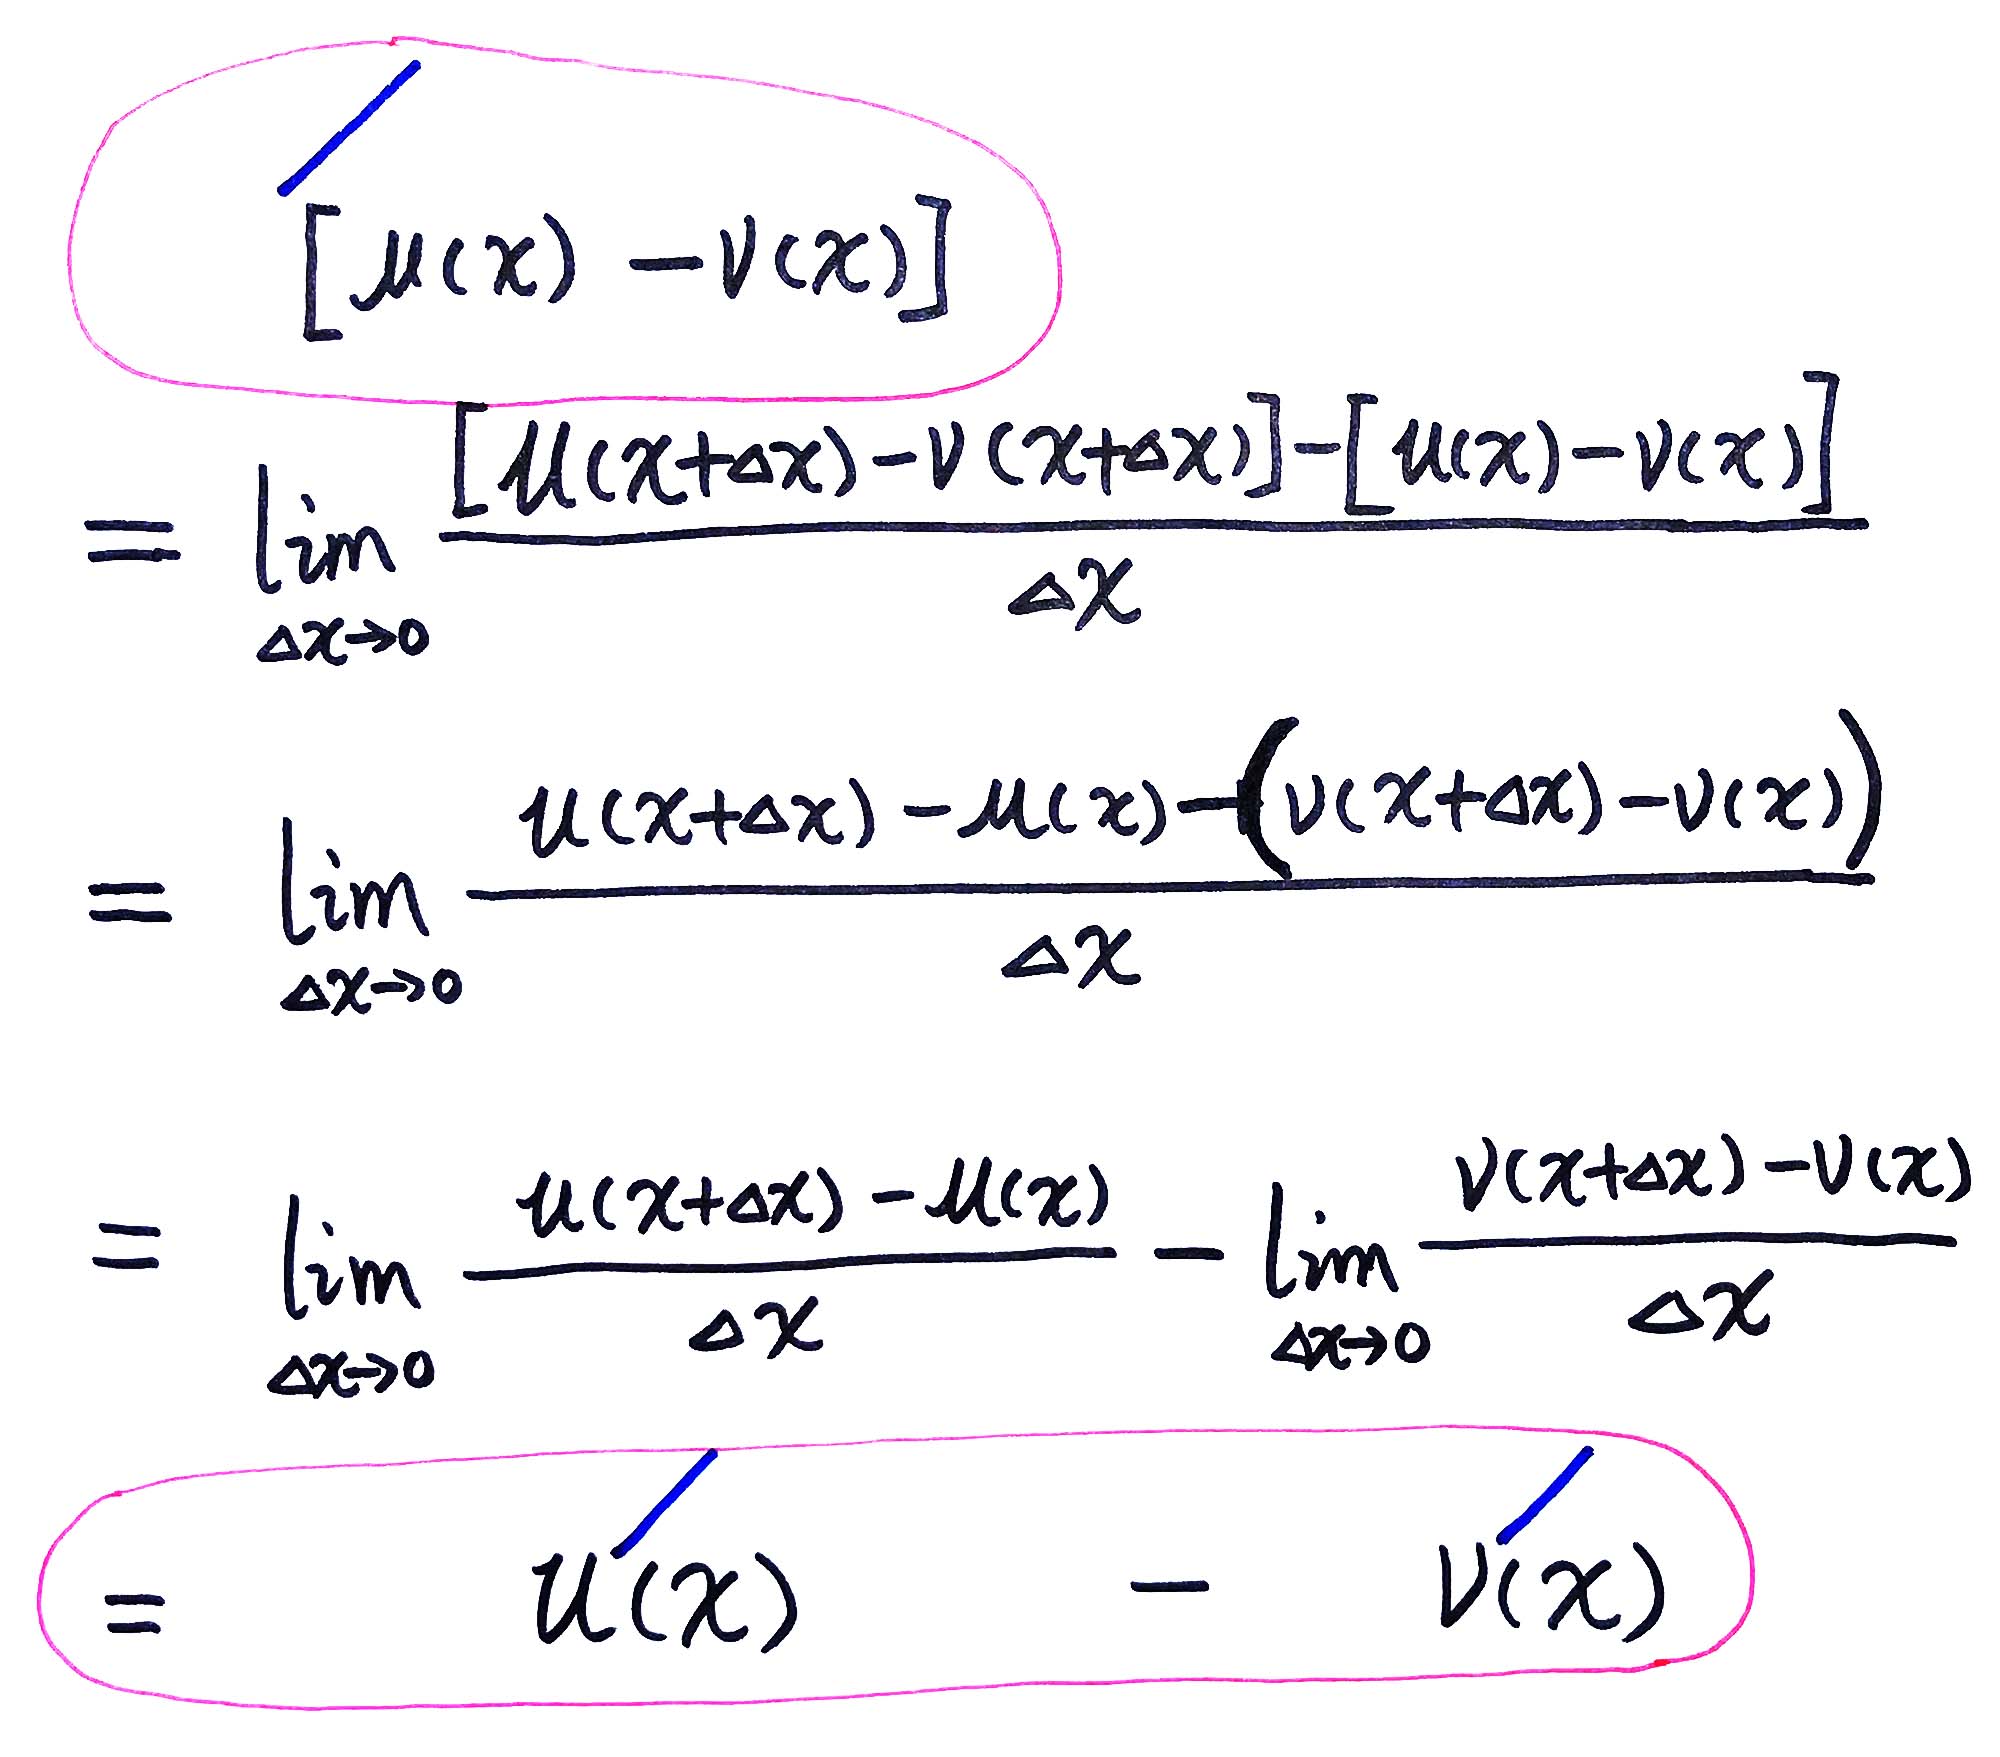 ′[u(x) − v(x)]
= lim Δx→0 [u(x+Δx) − v(x+Δx)] − [u(x) − v(x)] / Δx
= lim Δx→0 u(x+Δx) − u(x) − (v(x+Δx) − v(x)) / Δx
= lim Δx→0 u(x+Δx) − u(x) / Δx − lim Δx→0 v(x+Δx) − v(x) / Δx
= u′(x) − v′(x)